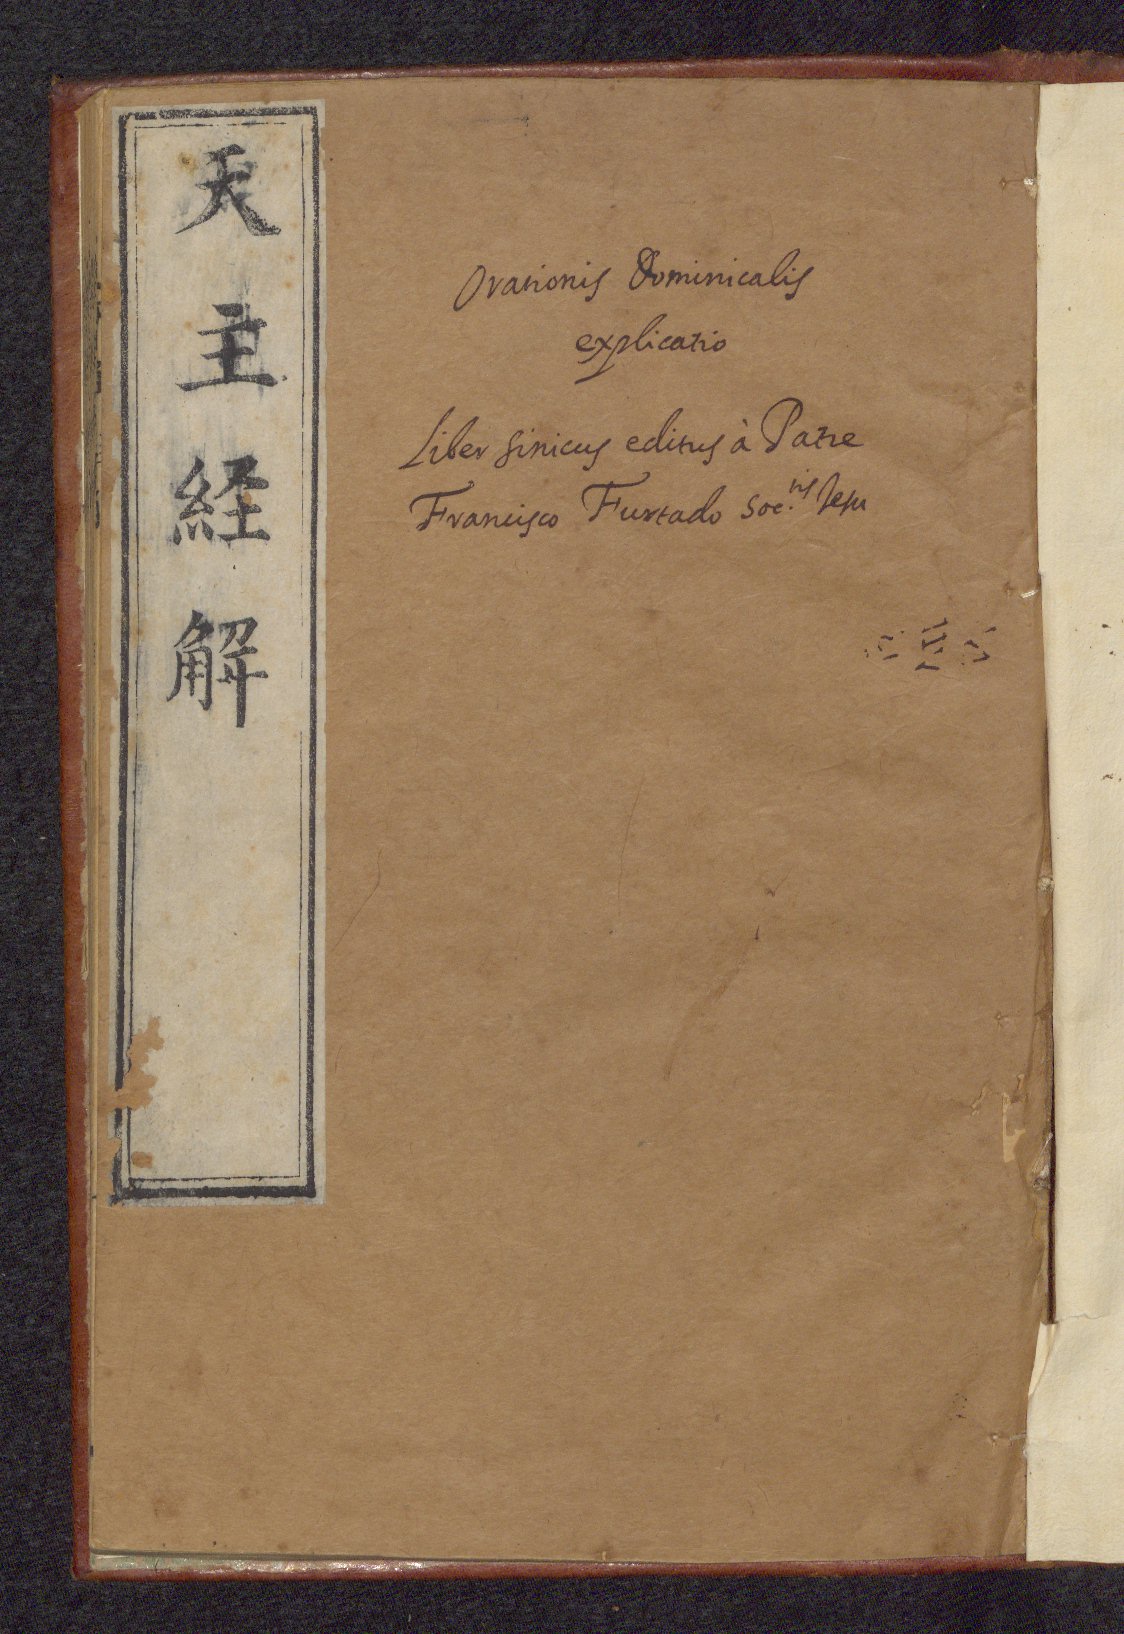 天主経解
Orationis Dominicalis
explicatio
Liber sinicus editus à Patre
Francisco Furtado Soc.tis Jesu